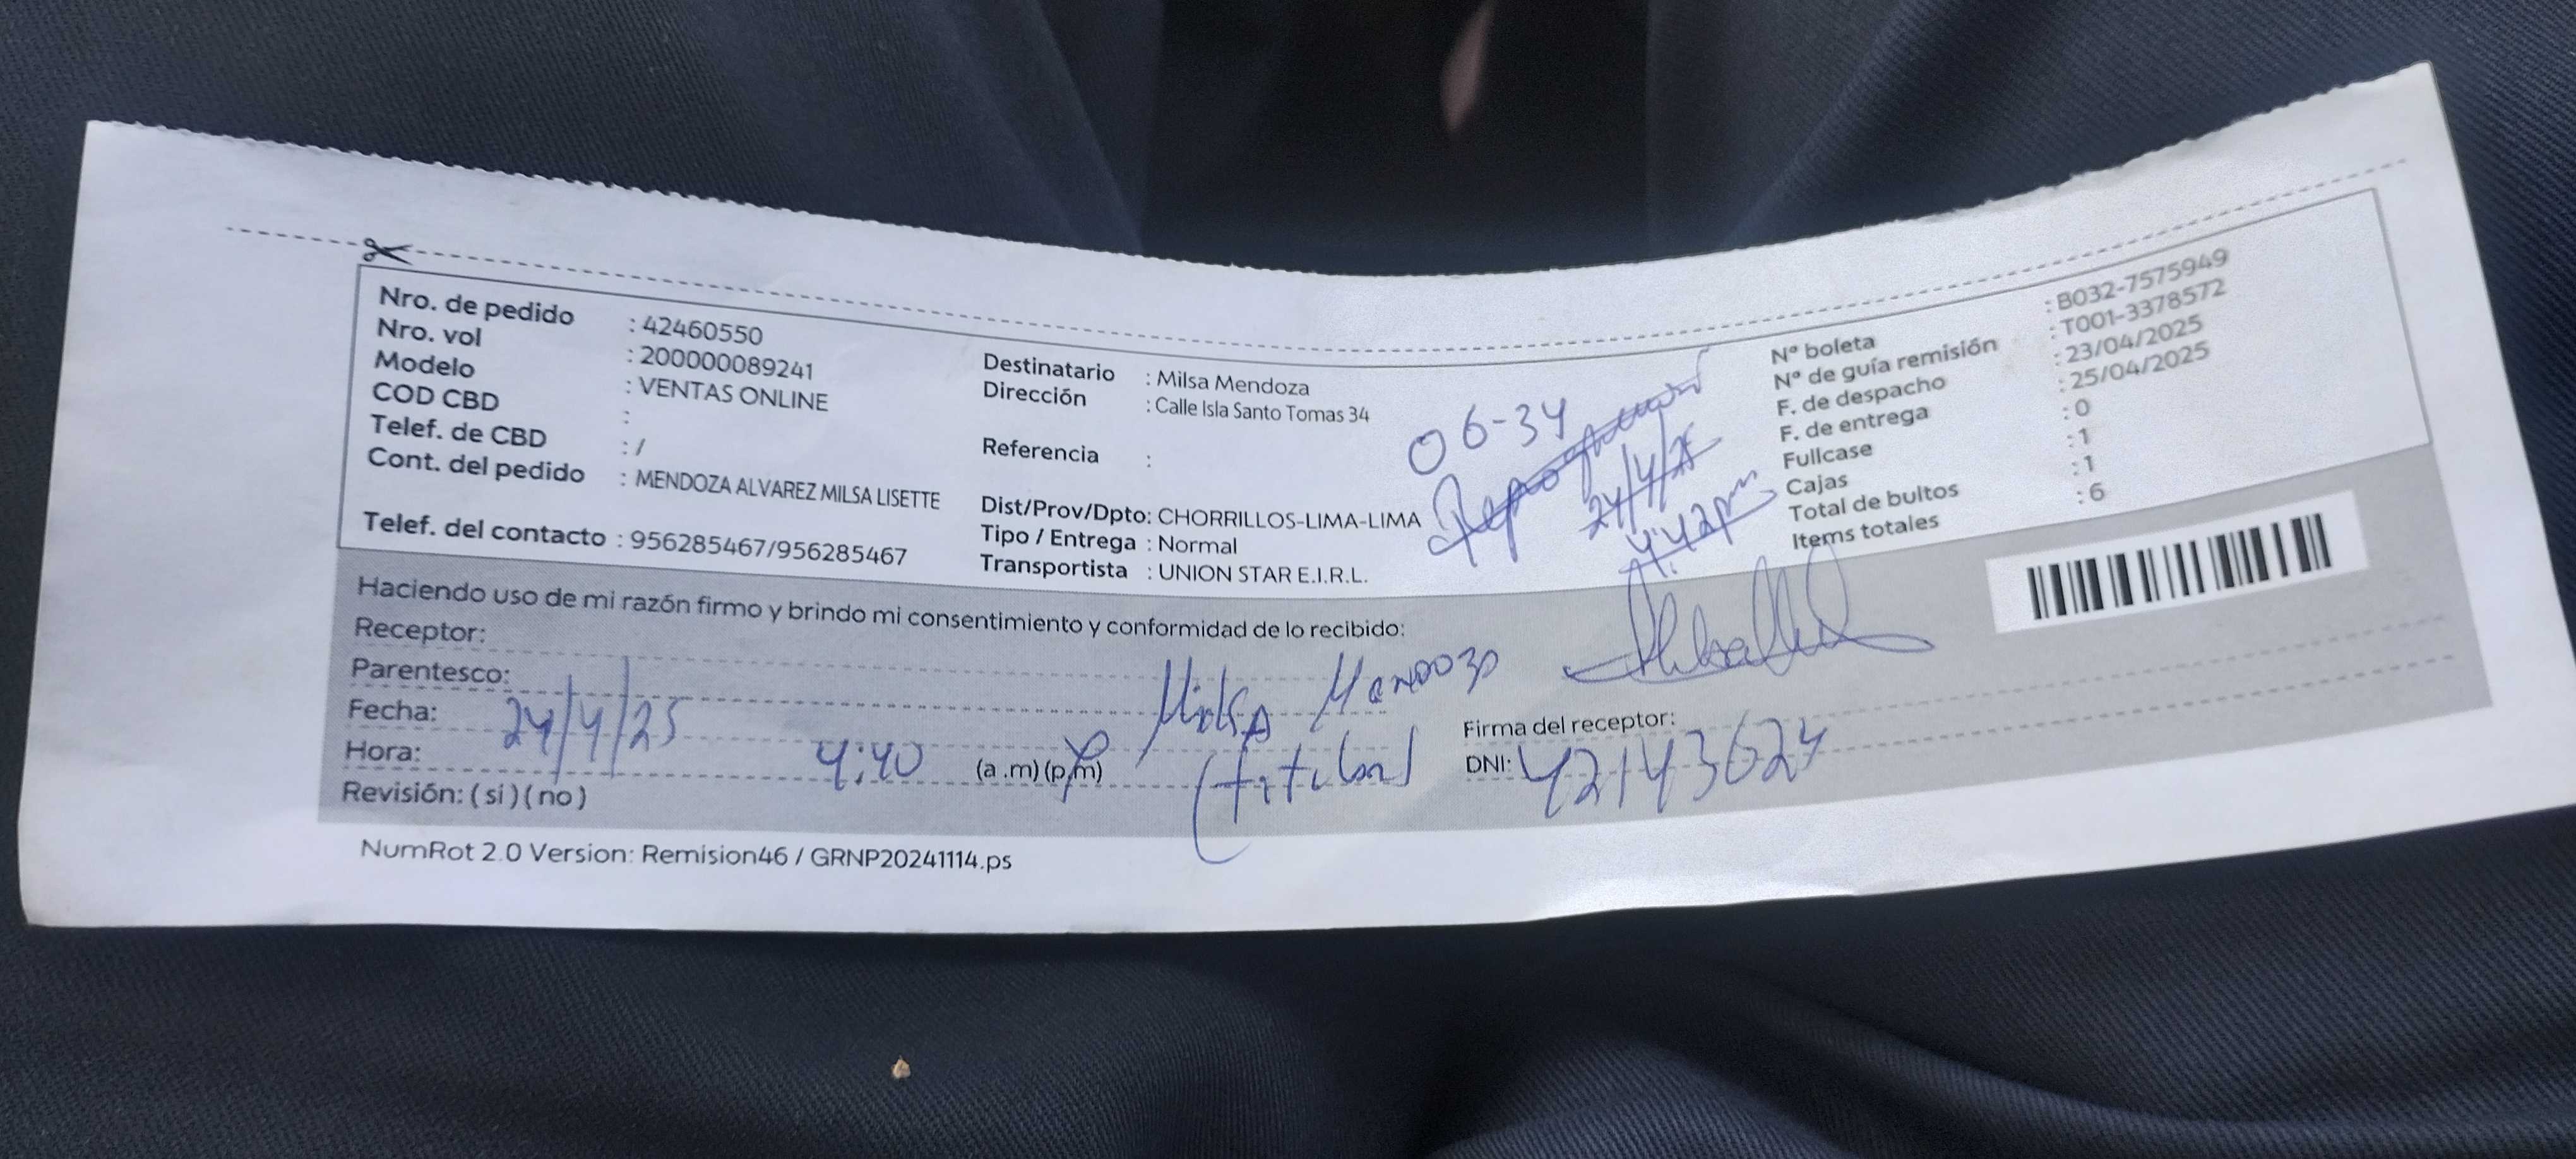 Nro. de pedido : 42460550
Nro. vol : 200000089241
Modelo : VENTAS ONLINE
COD CBD :
Telef. de CBD : /
Cont. del pedido : MENDOZA ALVAREZ MILSA LISETTE
Telef. del contacto : 956285467/956285467
Destinatario : Milsa Mendoza
Dirección : Calle Isla Santo Tomas 34
Referencia :
Dist/Prov/Dpto: CHORRILLOS-LIMA-LIMA
Tipo / Entrega : Normal
Transportista : UNION STAR E.I.R.L.
06-34
24/4/25
4:42pm
Nº boleta : B032-7575949
Nº de guía remisión : T001-3378572
F. de despacho : 23/04/2025
F. de entrega : 25/04/2025
Fullcase : 0
Cajas : 1
Total de bultos : 1
Items totales : 6
Haciendo uso de mi razón firmo y brindo mi consentimiento y conformidad de lo recibido:
Receptor:
Parentesco:
Fecha: 24/4/25
Hora: 4:40 (a .m) (p.m)
Revisión: ( si ) ( no )
Milsa Mendoza
(titular)
Firma del receptor:
DNI: 42143624
NumRot 2.0 Version: Remision46 / GRNP20241114.ps